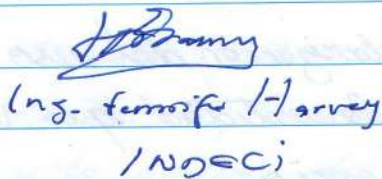 Ing. Jennifer Harvey
INDECI